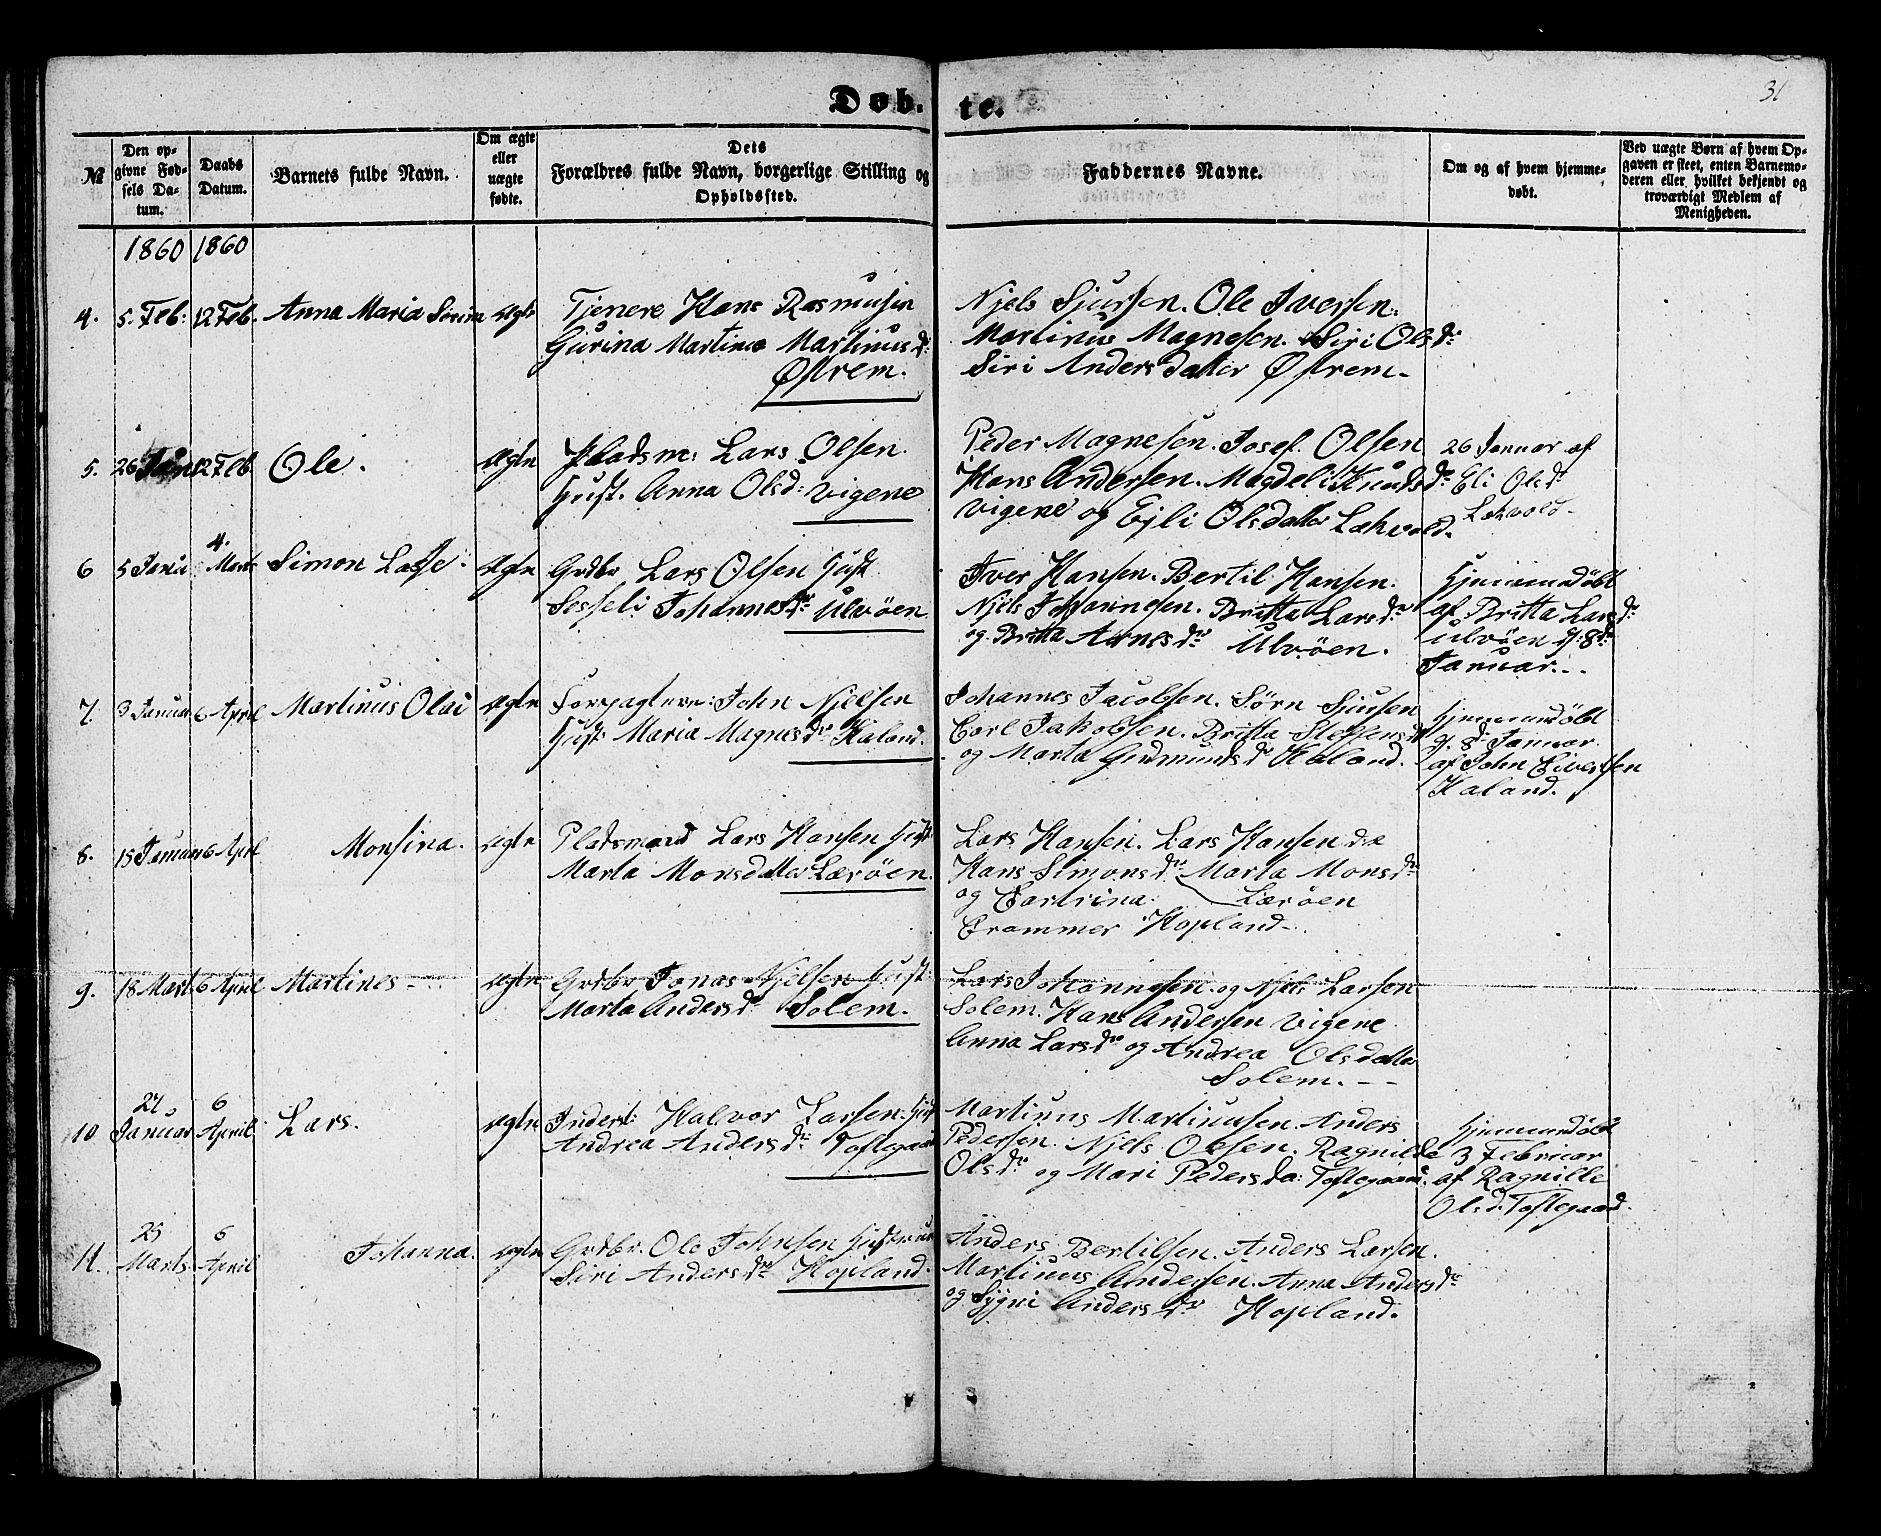 31
Døb. te.
№
Den opgivne Fødsels Datum.
Daabs Datum.
Barnets fulde Navn.
Om ægte eller uægte fødte.
Dets Forældres fulde Navn, borgerlige Stilling og Opholdssted.
Faddernes Navne.
Om og af hvem hjemmedøbt.
Ved uægte Børn af hvem Opgaven er skeet, enten Barnemoderen eller hvilket bekjendt og troværdigt Medlem af Menigheden.
1860 1860
4. 5. Feb: 12 Feb. Anna Maria Sevrine ægte
Tjenere Hans Rasmusen
Gurina Martine Martinusd:
Østrem.
Njels Sjursen. Ole Iversen.
Martinus Magnesen. Siri Olsdr
Siri Andersdatter Østrem.
5. 26 Jan 12 Feb Ole. ægte
Pladsm: Lars Olsen.
Hust. Anna Olsd: Vigene
Peder Magnesen. Josef. Olsen
Hans Andersen. Magdeli Knudsdr
Vigene og Ejli Olsdatter Løkvold.
26 Januar af
Eli Olsdr
Løkvold.
6 5 Janu 4. Marts Simon Lasse ægte
Grdbr Lars Olsen Hust
Sesseli Johannesdr Ulvøen
Iver Hansen. Bertil Hansen.
Njels Johannesen. Britta Larsdr
og Britta Arnesdr Ulvøen.
Hjemmedøbt
af Britta Larsdr
Ulvøen d: 8de
Januar.
7. 3 Januar 6 April Martinus Olai ægte
Forpagter: John Njelsen
Hust: Maria Magnesdr Haland.
Johannes Jacobsen. Sørn Sjursen
Carl Jakobsen. Britta Steffensd
og Marta Gudmundsdr Haland.
Hjemmedøbt
d. 8de Januar
af John Eivertsen
Haland.
8. 15 Januar 6 April Monsina. ægte
Pladsmand Lars Hansen Hust
Marta Monsdatter Lærøen.
Lars Hansen. Lars Hansen
Hans Simonsdr Marta Monsdr
og Cartrina. Lærøen
Crammer Hopland.
9. 18 Marts 6 April Martines ægte
Grdbr Jonas Njelsen Hust:
Marta Andersdr Solem.
Lars Johannesen og Njels Larsen
Solem. Hans Andersen Vigene
Anna Larsdr og Andrea Olsdatter
Solem.
10 27 Januar 6 April Lars. ægte
Inderst: Halvor Larsen Hust
Andrea Andersdr Toftegaard
Martinus Martinusen. Anders
Pedersen. Njels Olsen. Ragnilde
Olsdr og Mari Pedersda: Toftegaard.
Hjemmedøbt
3 Februar
af Ragnille
Olsd. Toftegaard.
11. 25 Marts 6 April Johanna. ægte
Grdbr. Ole Johnsen Hustrue
Siri Andersdr Hopland.
Anders Bertilsen. Anders Larsen.
Martinus Andersen. Anna Andersdr
og Sygni Andersdr Hopland.